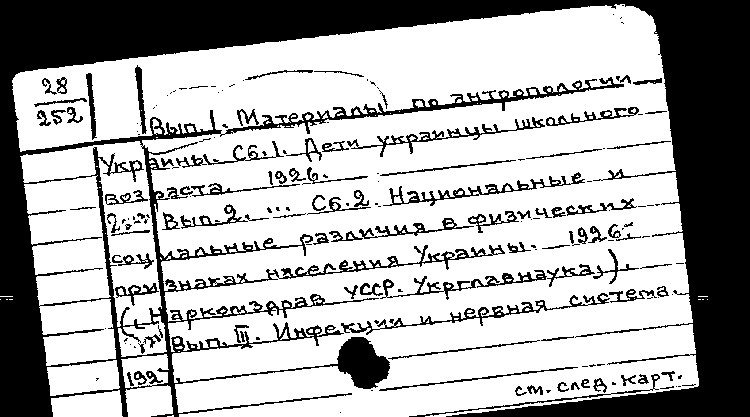 28
252
Вып. 1. Материалы по антропологии
Украины. Сб. 1. Дети украинцы школьного
возраста. 1926.
Вып. 2. ... Сб. 2. Национальные и
социальные различия в физических
признаках населения Украины. 1926.
(Наркомздрав УССР. Укрглавнаука).
Вып. III. Инфекции и нервная система.
см. след. карт.